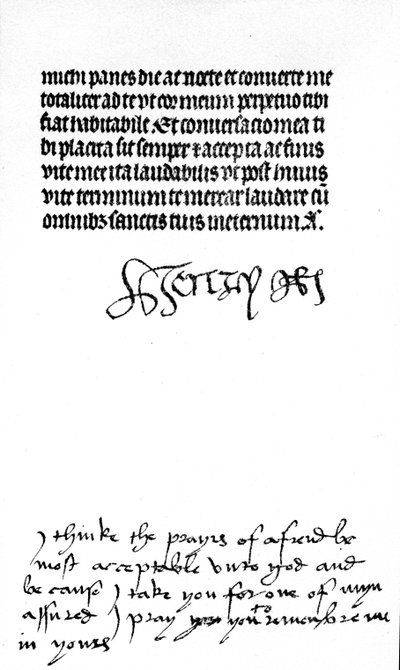 michi panes die ac nocte et conuerte me
totaliter ad te vt cor meum perpetuo tibi
fiat habitabile Et conuersacio mea ti
bi placita sit semper & accepta ac finis
vite mee ita laudabilis vt post huius
vite terminum te merear laudare cū
omnibȝ sanctis tuis in eternum A.
Henry
I thinke the prayrs of a frend be
most acceptable vnto god and
be cause I take you for one of myn
assured I pray you to remembre me
in yours